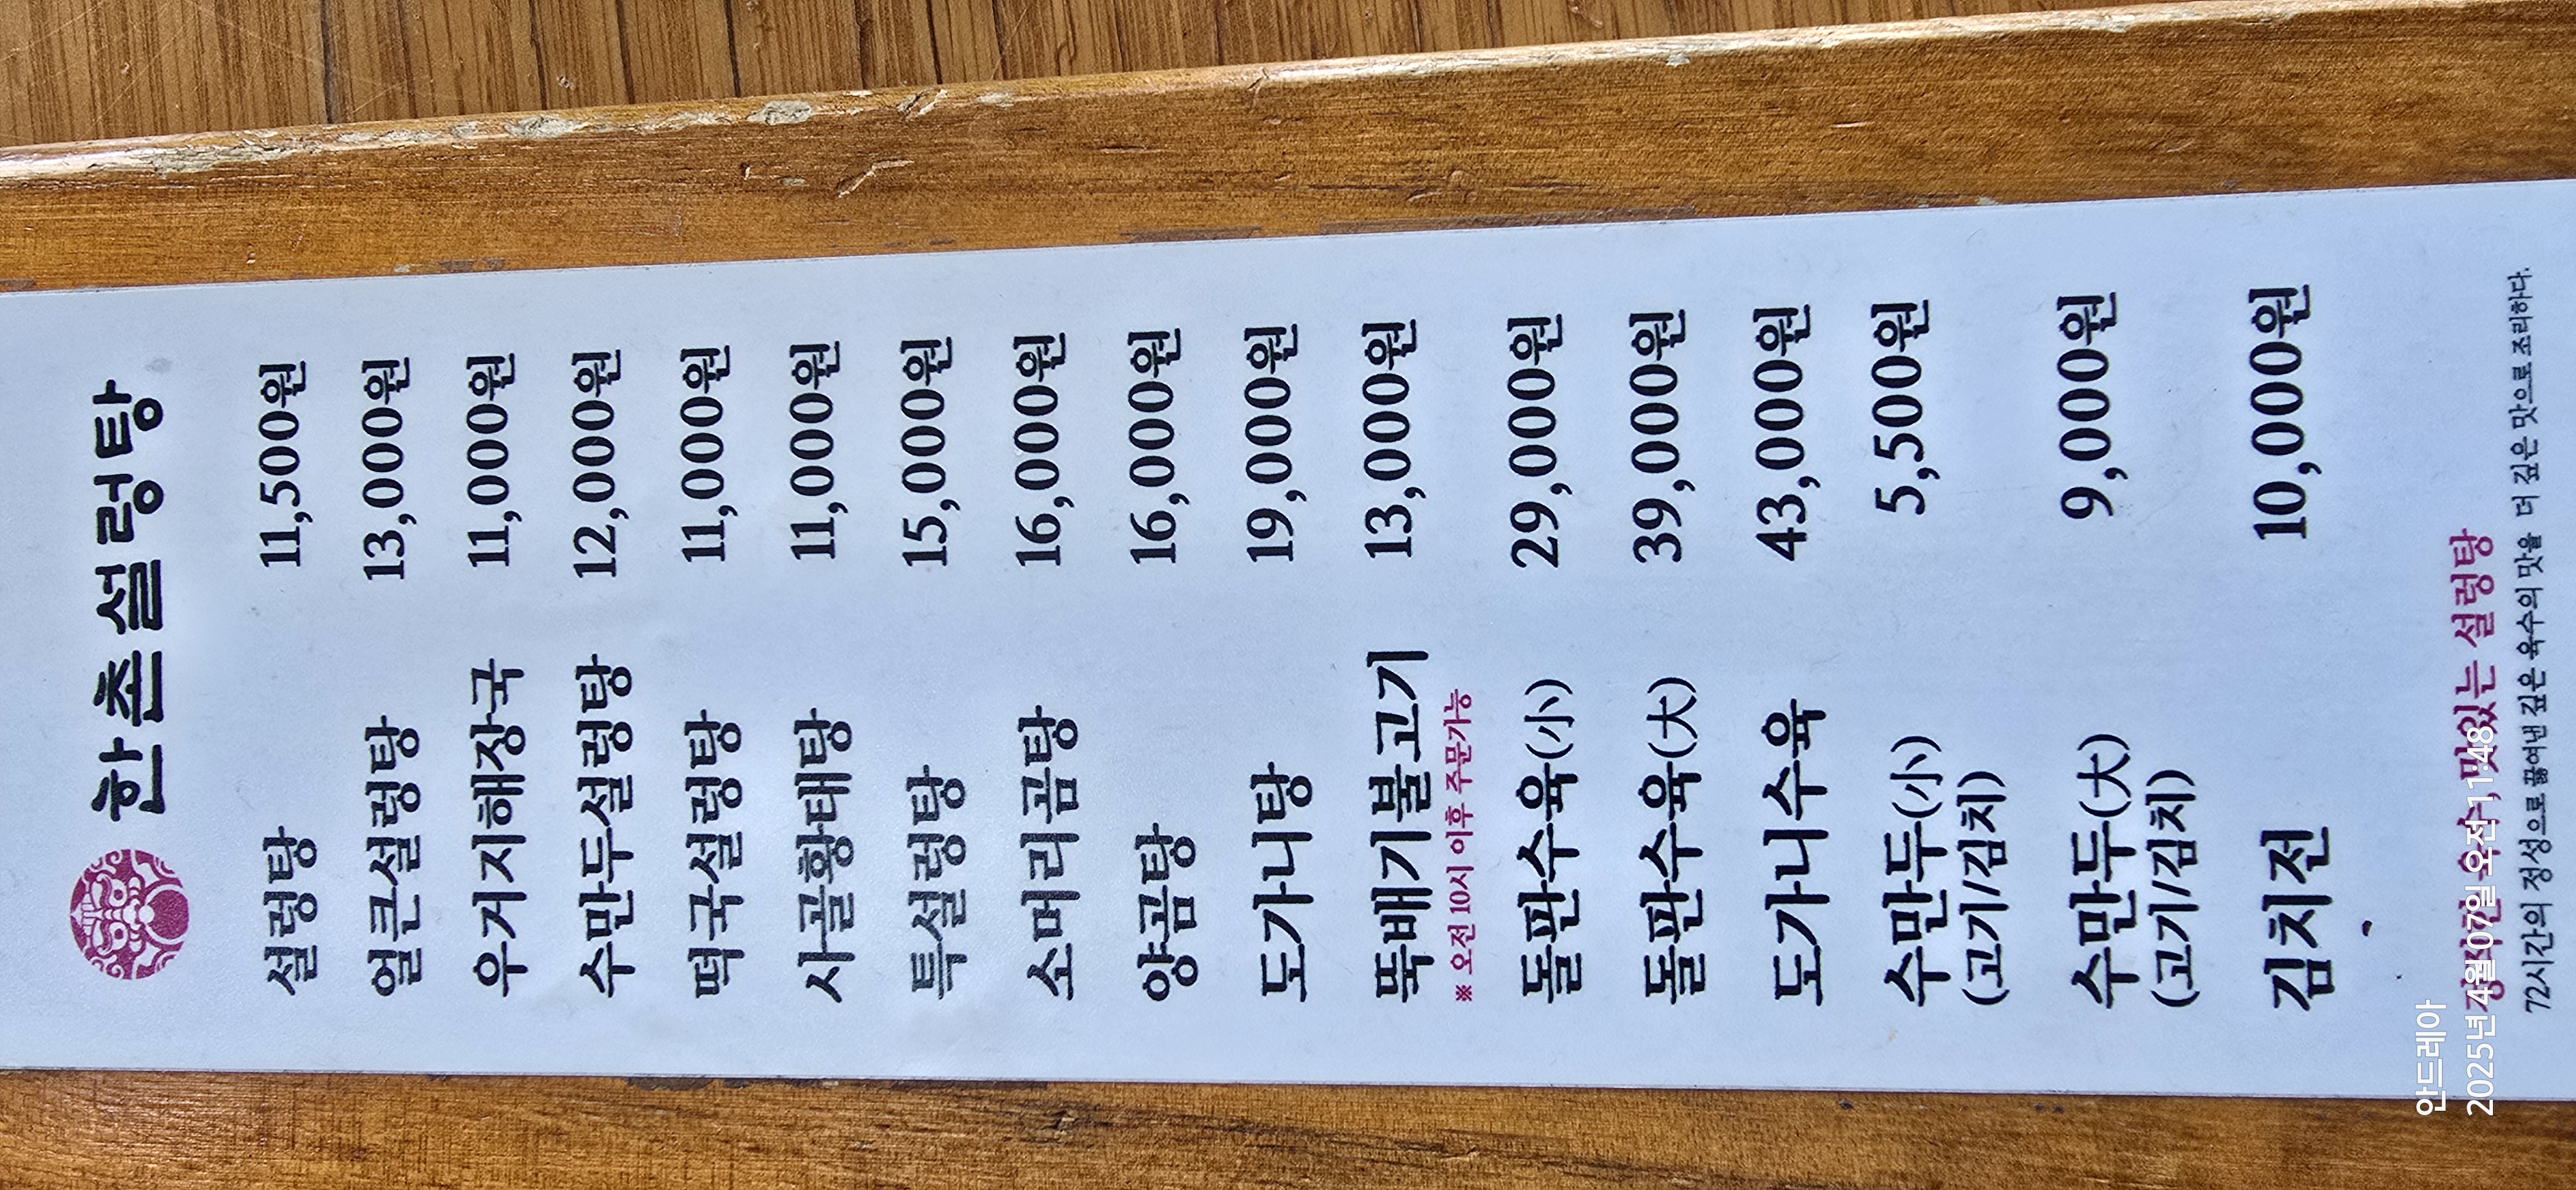 한촌설렁탕
설렁탕 11,500원
얼큰설렁탕 13,000원
우거지해장국 11,000원
수만두설렁탕 12,000원
떡국설렁탕 11,000원
사골황태탕 11,000원
특설렁탕 15,000원
소머리곰탕 16,000원
양곰탕 16,000원
도가니탕 19,000원
뚝배기불고기 13,000원
※ 오전 10시 이후 주문가능
돌판수육(小) 29,000원
돌판수육(大) 39,000원
도가니수육 43,000원
수만두(小) 5,500원
(고기/김치)
수만두(大) 9,000원
(고기/김치)
김치전 10,000원
맛있는 설렁탕
72시간의 정성으로 끓여낸 깊은 육수의 맛을 더 깊은 맛으로 조리하다.
안드레아
2025년 4월 07일 오전 11:48